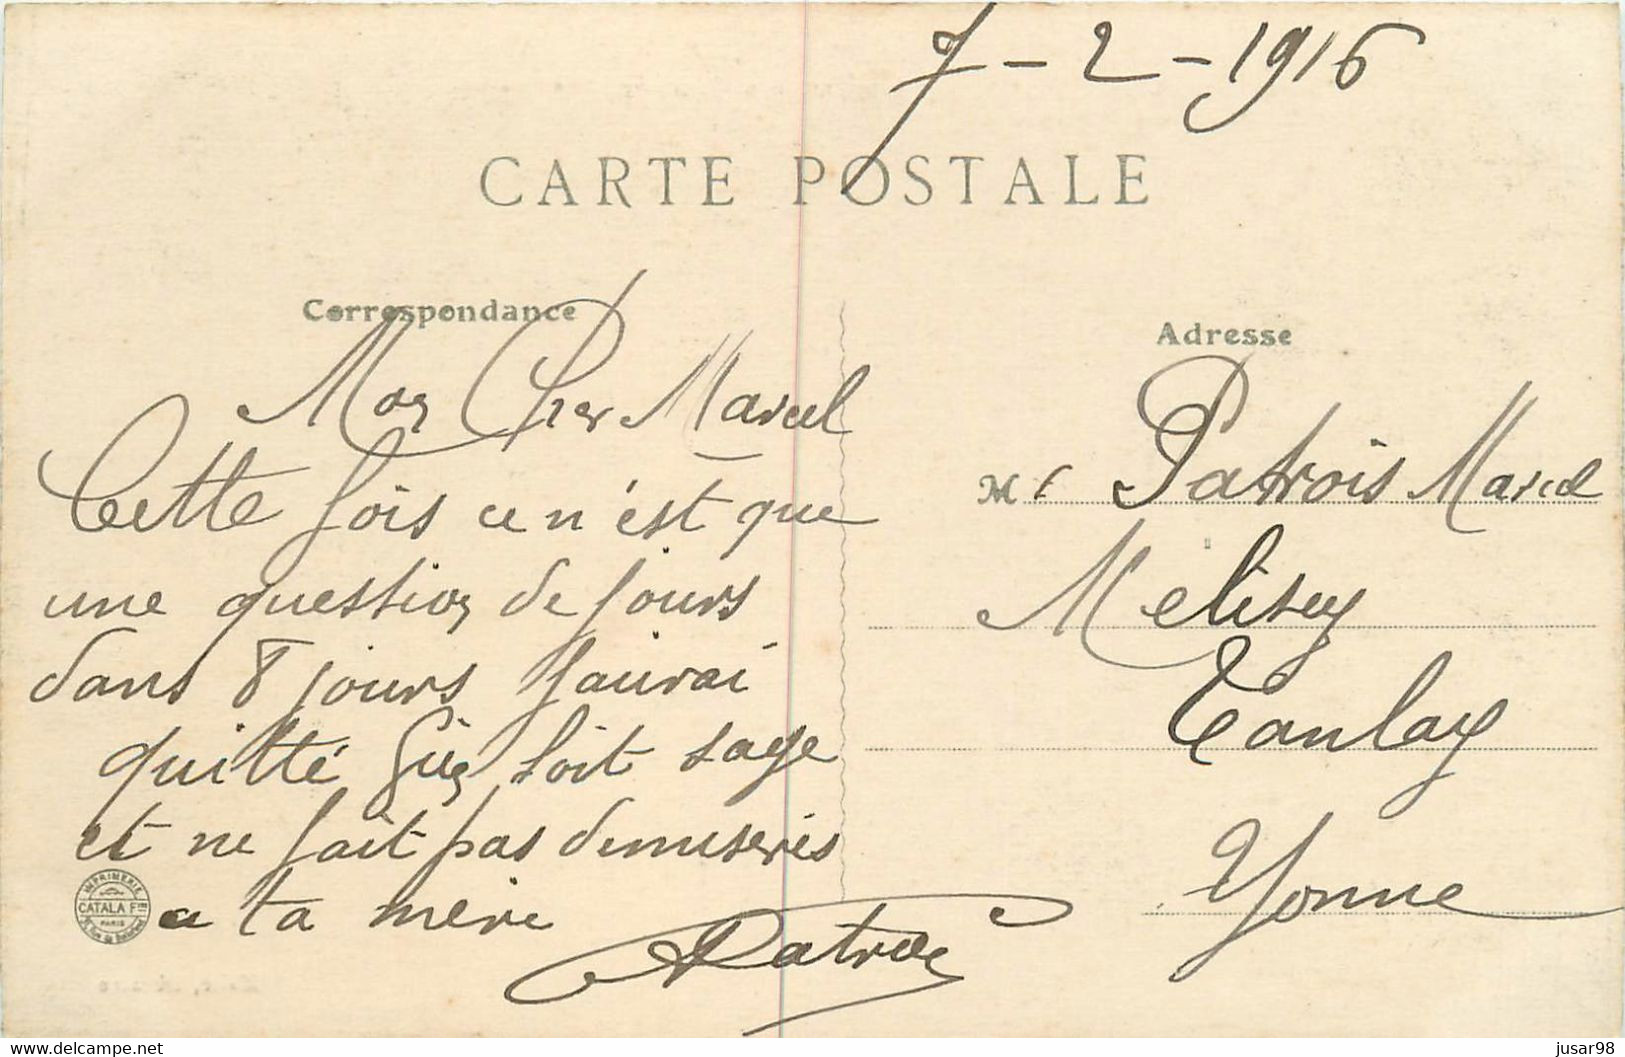 7-2-1916
CARTE POSTALE
Correspondance
Mon Cher Marcel
Cette fois ce n'est que
une question de jours
dans 8 jours j'aurai
quitté soit sage
et ne fait pas de miseres
a ta mère
Patrois
Adresse
Mr Patrois Marcel
Melisey
Tanlay
Yonne
IMPRIMERIE
CATALA Fres
PARIS
jusar98